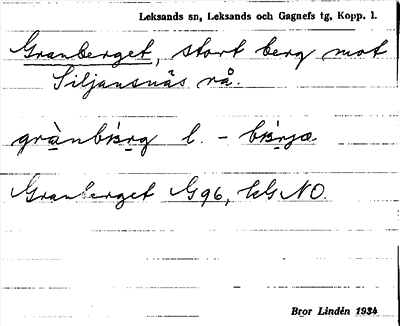 Leksands sn, Leksands och Gagnefs tg, Kopp. l.
Granberget, stort berg mot
Siljansnäs rå.
l. -
Granberget G96, kG NO.
Bror Lindén 1934